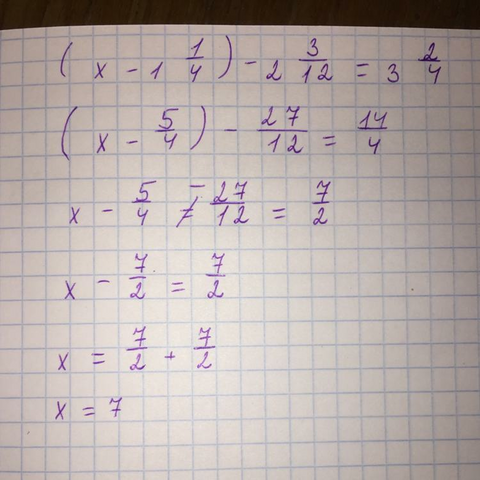 ( x - 1 1/4 ) - 2 3/12 = 3 2/4
( x - 5/4 ) - 27/12 = 14/4
x - 5/4 - 27/12 = 7/2
x - 7/2 = 7/2
x = 7/2 + 7/2
x = 7